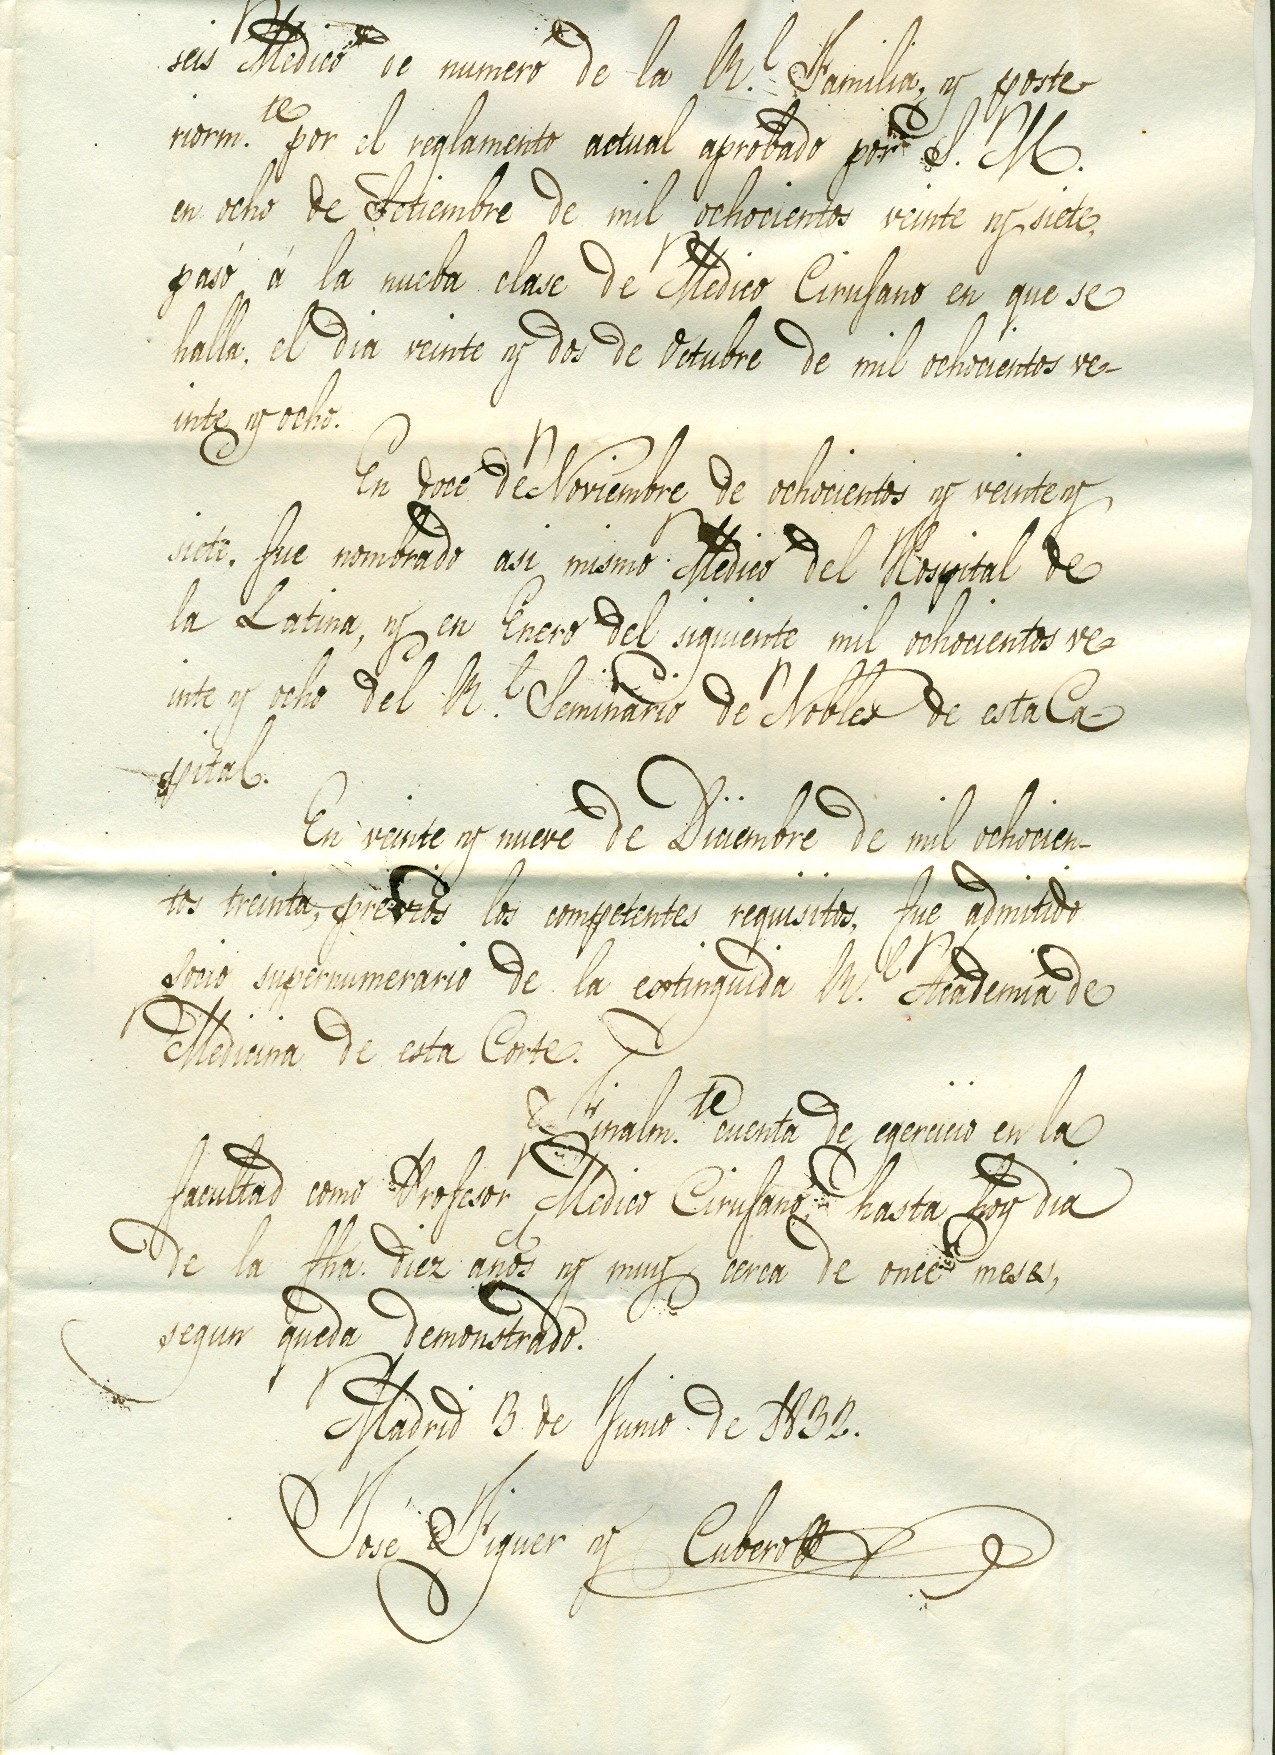 seis Medico de numero de la R.l Familia, y poste
riorm.te por el reglamento actual aprobado por S. M.
en ocho de Setiembre de mil ochocientos veinte y siete,
pasó á la nueba clase de Medico Cirujano en que se
halla, el dia veinte y dos de Octubre de mil ochocientos ve-
inte y ocho.
En doce de Noviembre de ochocientos y veinte y
siete, fue nombrado asi mismo Medico del Hospital de
la Latina, y en Enero del siguiente mil ochocientos ve-
inte y ocho del R.l Seminario de Nobles de esta Ca-
pital.
En veinte y nueve de Diciembre de mil ochocien-
tos treinta, previos los competentes requisitos, fue admitido
socio supernumerario de la extinguida R.l Academia de
Medicina de esta Corte.
Finalm.te cuenta de egercicio en la
facultad como Profesor Medico Cirujano, hasta hoy dia
de la fha. diez años y muy cerca de once meses,
segun queda demonstrado.
Madrid 3 de Junio de 1832.
José Siguer y Cubero